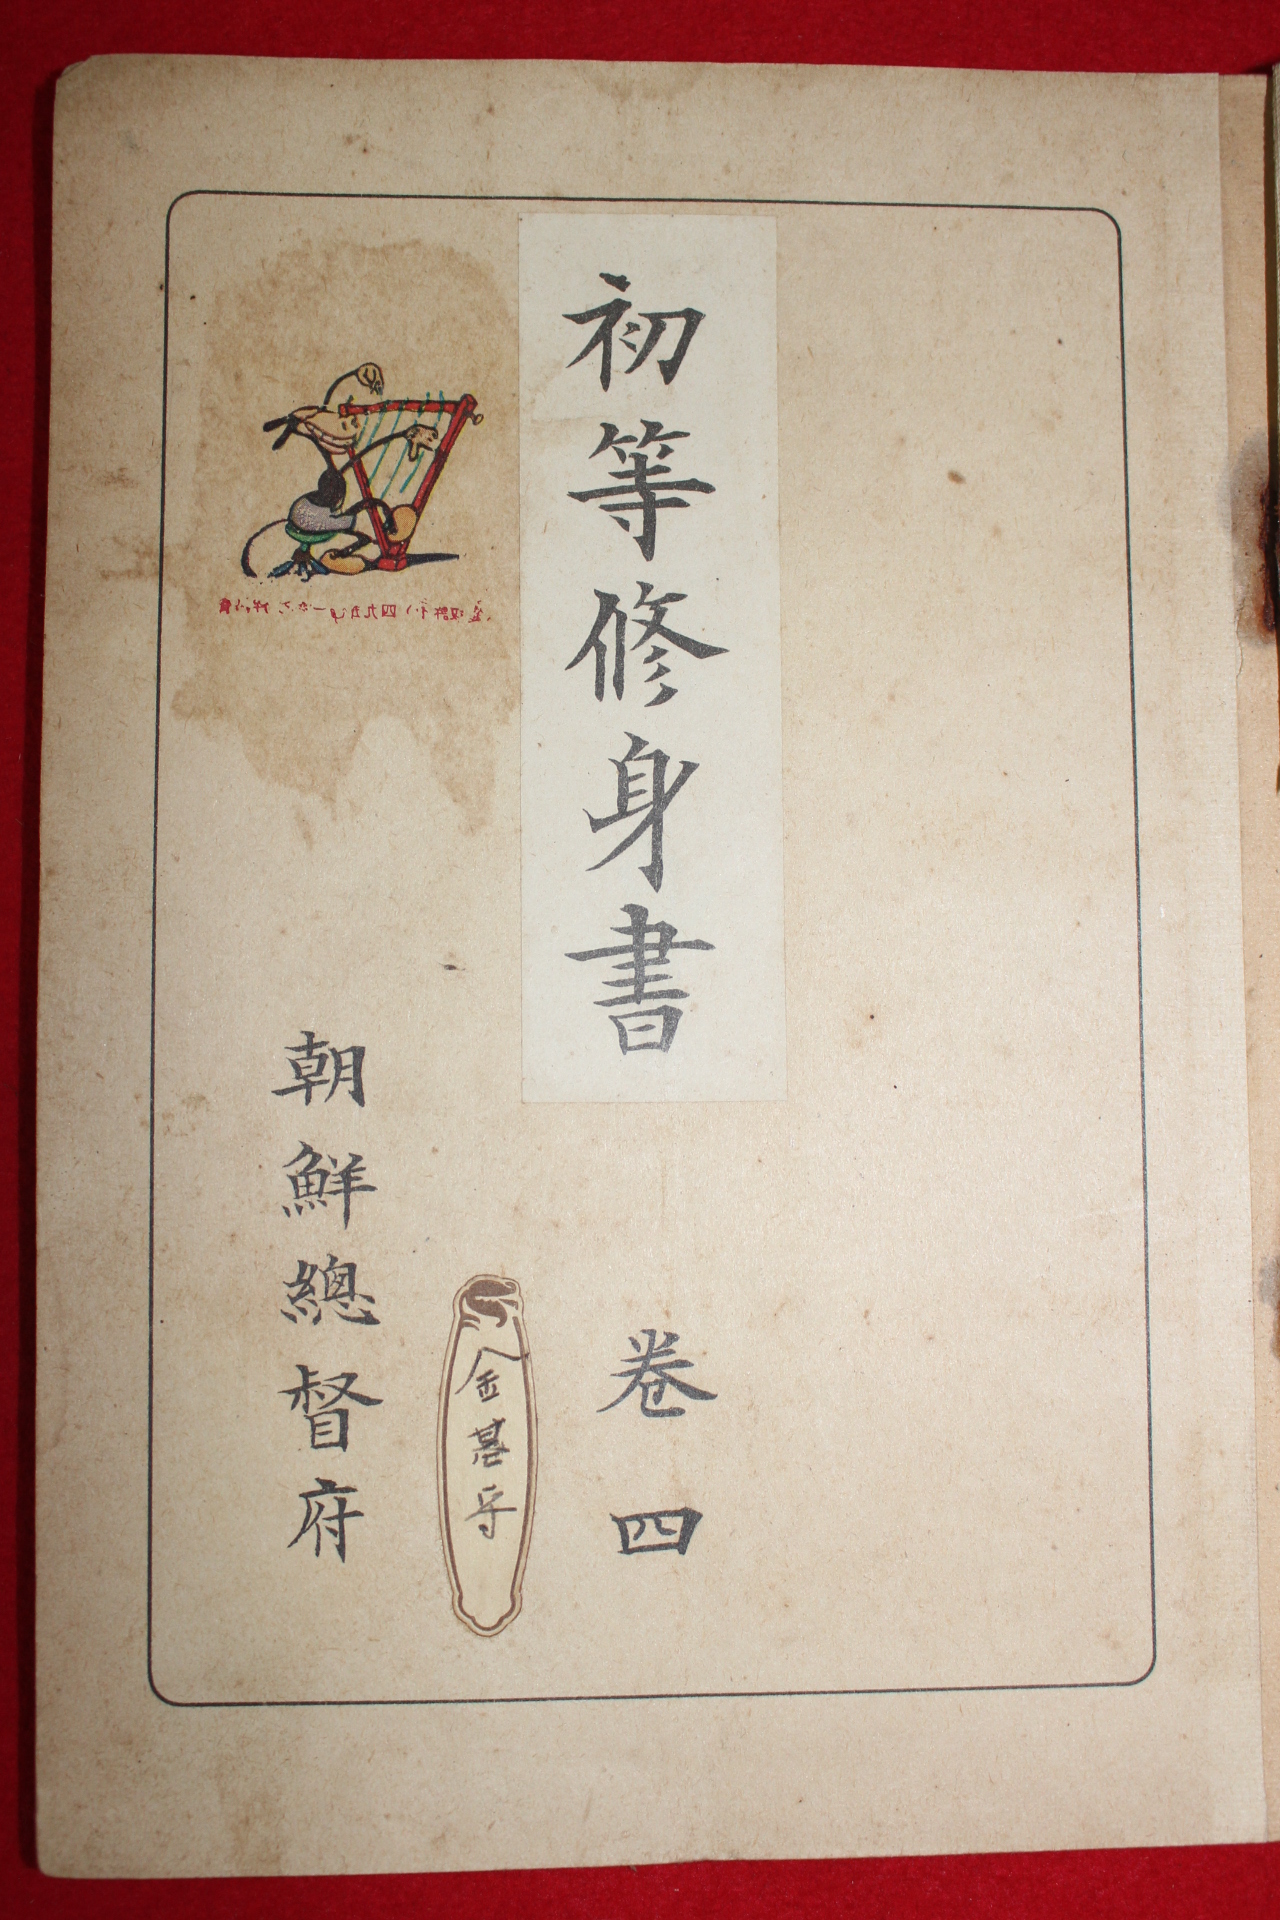 初等修身書
卷四
金基守
朝鮮總督府